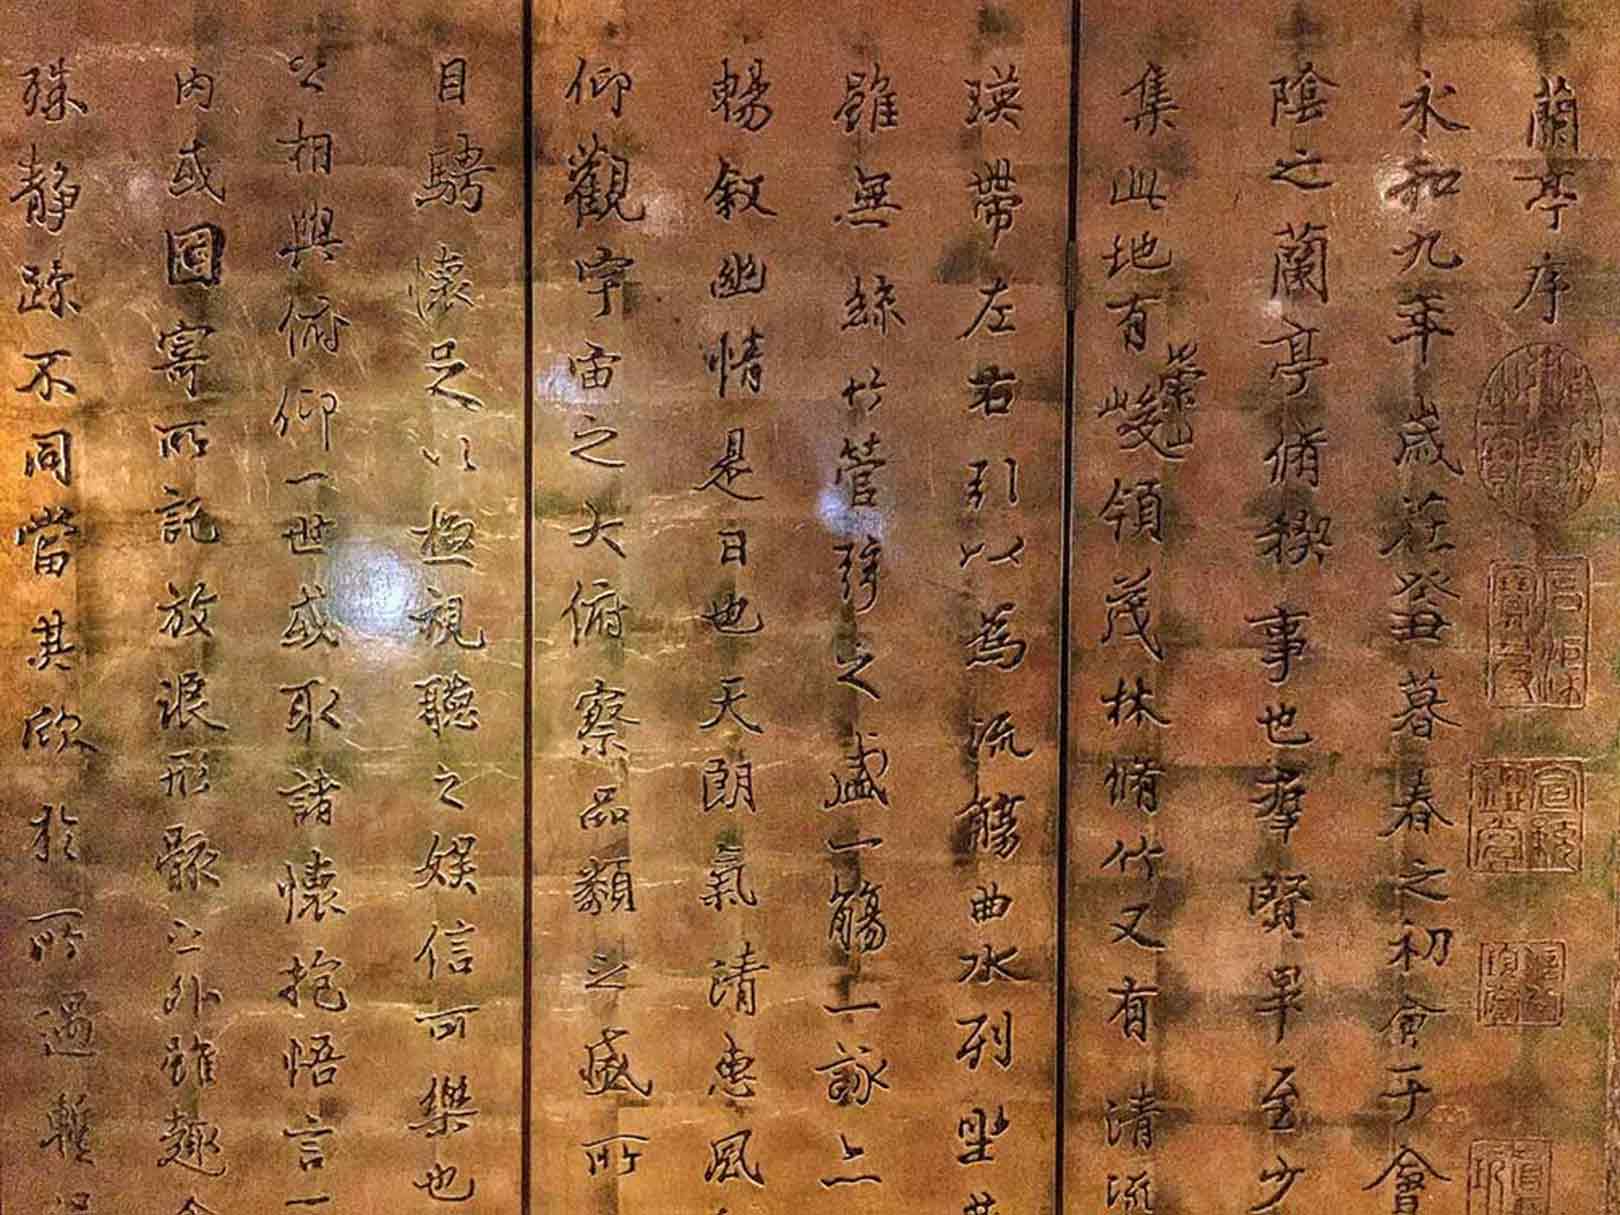 蘭亭序
永和九年歲在癸丑暮春之初會于會
陰之蘭亭脩稧事也羣賢畢至少
集此地有峻領茂林脩竹又有清流
崇山
暎帶左右引以為流觴曲水列坐其
雖無絲竹管弦之盛一觴一詠亦
暢敘幽情是日也天朗氣清惠風
仰觀宇宙之大俯察品類之盛所
目騁懷足以極視聽之娛信可樂也
之相與俯仰一世或取諸懷抱悟言一
內或因寄所託放浪形骸之外雖趣
殊静躁不同當其欣於所遇暫得